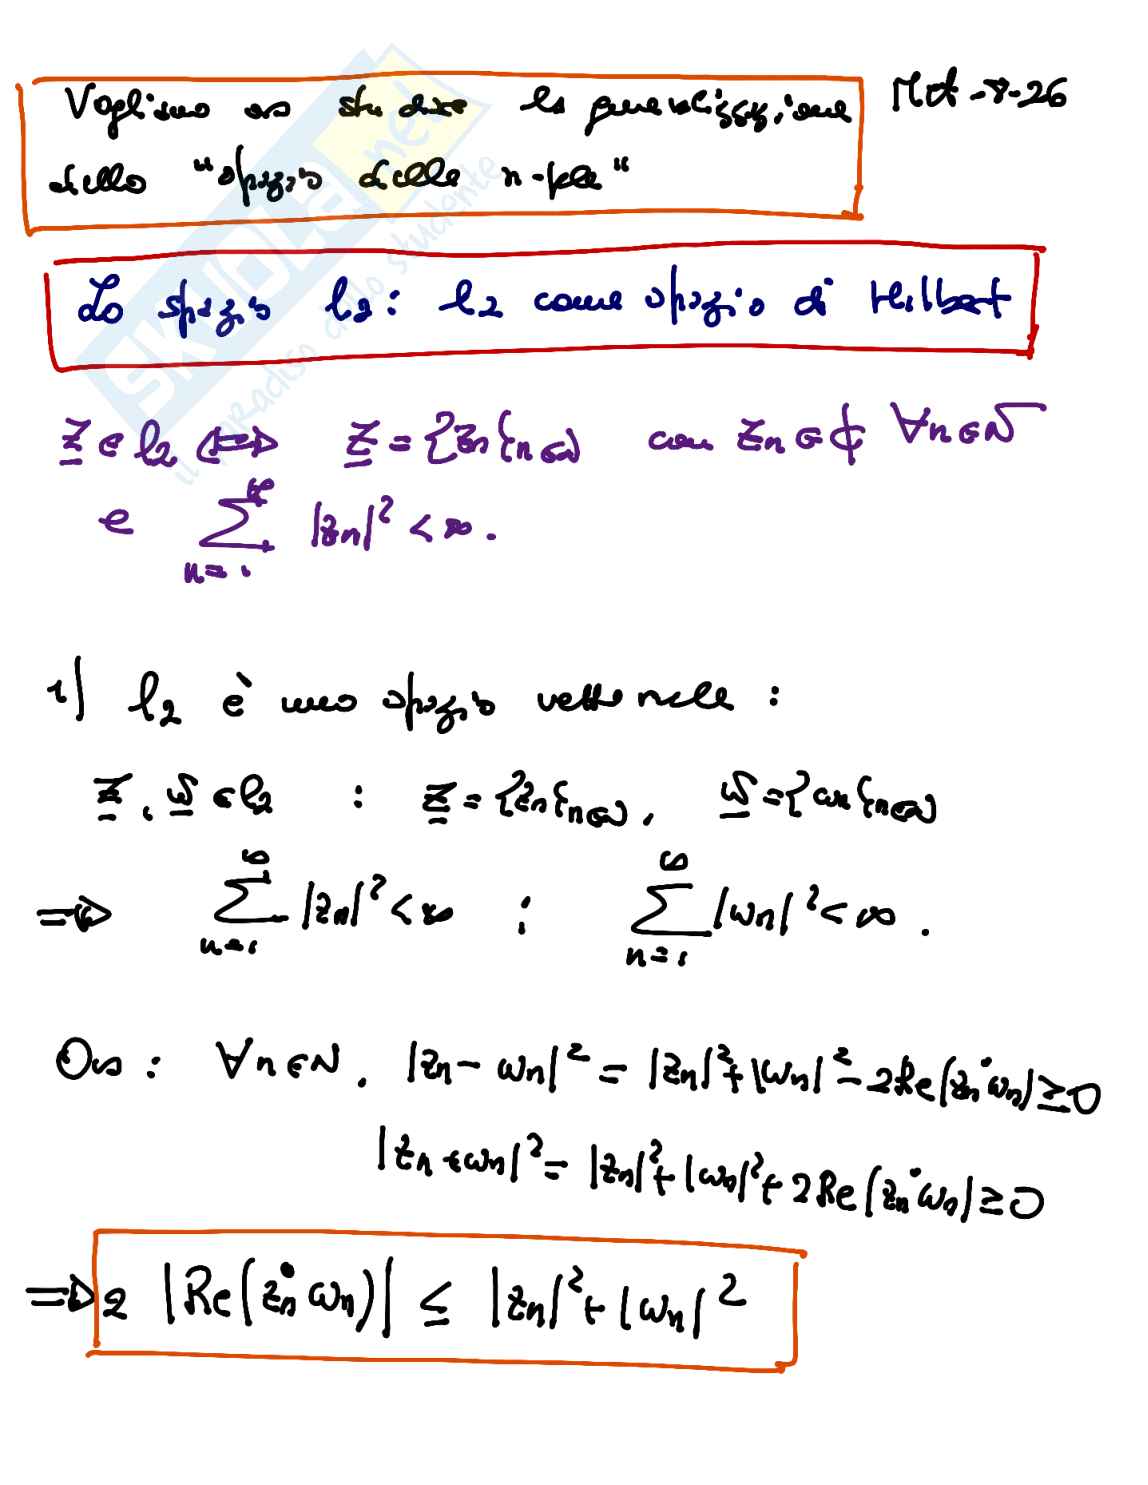 Vogliamo ora studiare la generalizzazione Met-8-26
dello "spazio delle n-ple"
Lo spazio l₂: l₂ come spazio di Hilbert
z ∈ l₂ ⇔ z = {zn}n∈N con zn ∈ ℂ ∀n∈N
e ∑_{n=1}^{∞} |zn|² < ∞.
1) l₂ è uno spazio vettoriale :
z, w ∈ l₂ : z = {zn}n∈N, w = {wn}n∈N
⇒ ∑_{n=1}^{∞} |zn|² < ∞ ; ∑_{n=1}^{∞} |wn|² < ∞.
Ora : ∀n∈N, |zn - wn|² = |zn|² + |wn|² - 2Re(zn* wn) ≥ 0
|zn + wn|² = |zn|² + |wn|² + 2Re(zn* wn) ≥ 0
⇒ 2 |Re(zn* wn)| ≤ |zn|² + |wn|²
SKUOLA.net
il paradiso dello studente